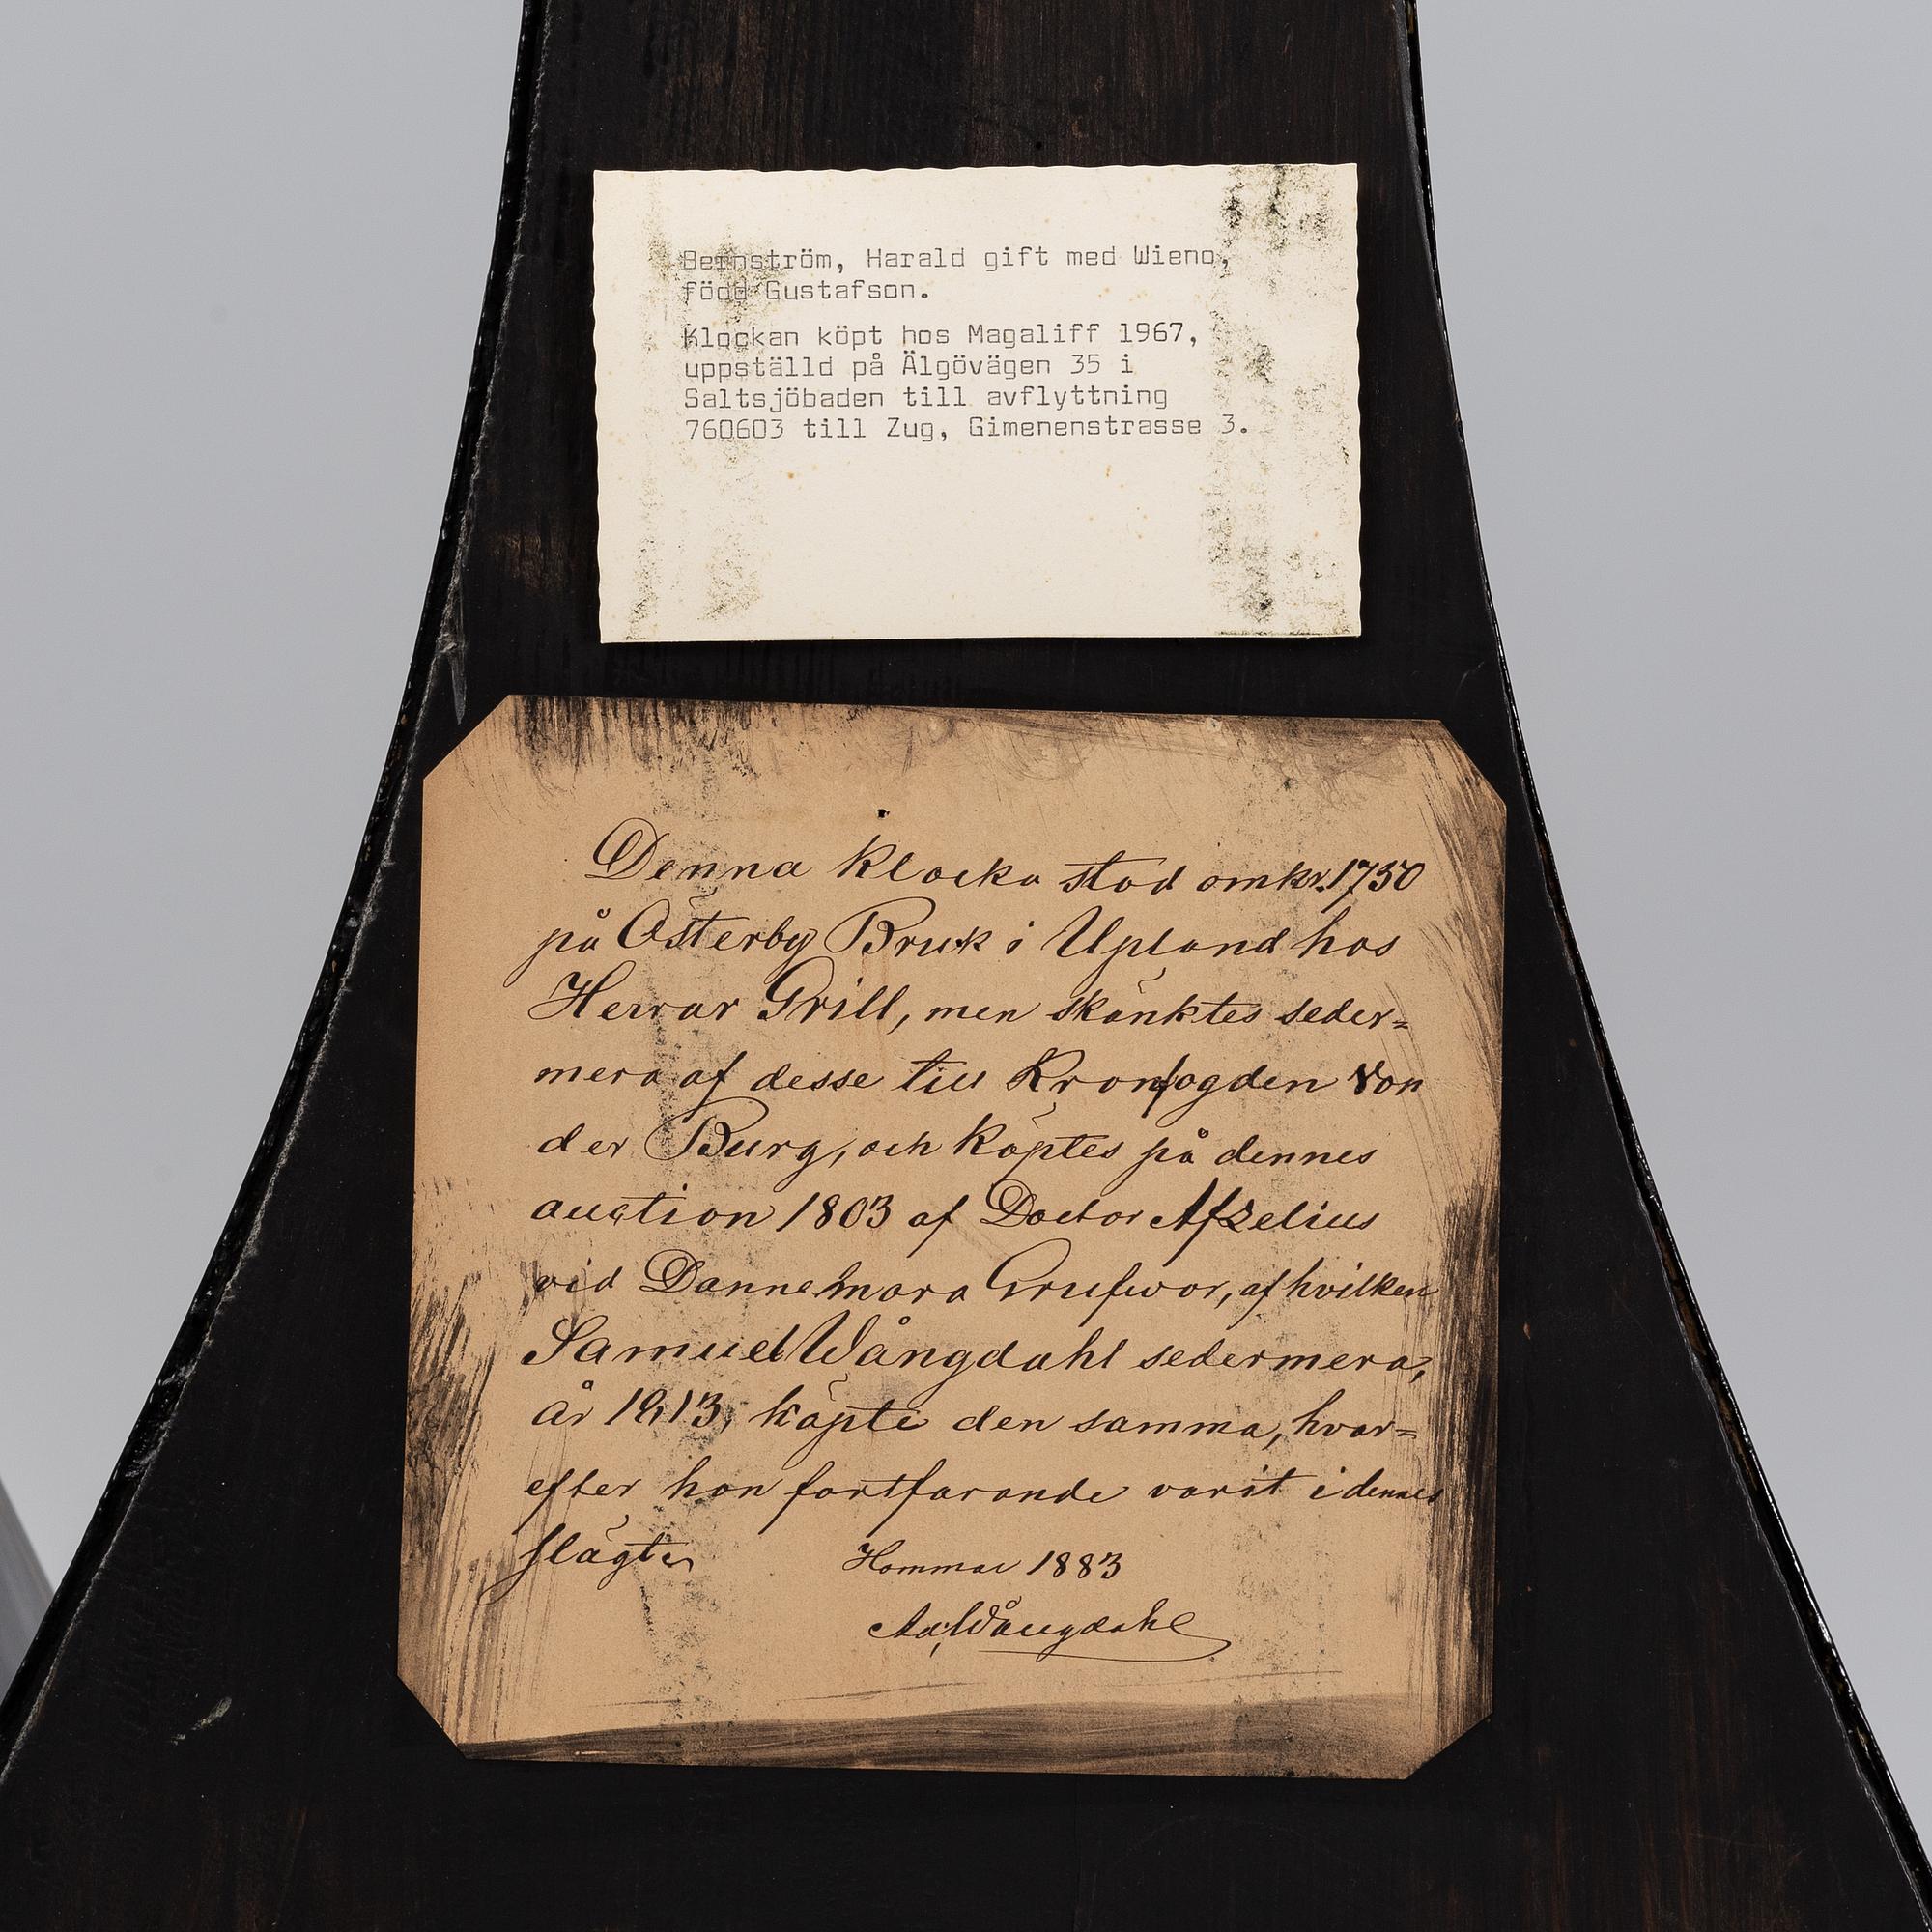 Bernström, Harald gift med Wieno,
född Gustafson.
Klockan köpt hos Magaliff 1967,
uppställd på Älgövägen 35 i
Saltsjöbaden till avflyttning
760603 till Zug, Gimenenstrasse 3.
Denna klocka stod omkr. 1750
på Österby Bruk i Upland hos
Herrar Grill, men skänktes seder=
mera af desse till Kronfogden von
der Burg, och köptes på dennes
auction 1803 af Doctor Afzelius
vid Dannemora Grufwor, af hvilken
Samuel Wångdahl sedermera,
år 1813, köpte den samma, hvar=
efter hon fortfarande varit i dennes
slägte
Hammar 1883
Wångdahl